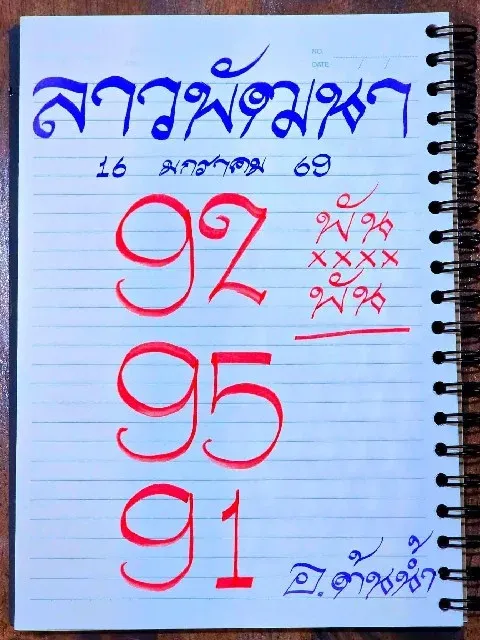 NO.
DATE / /
ลาวพัฒนา
16 มกราคม 69
92 พัน
××××
พัน
95
91
อ.ต้นน้ำ